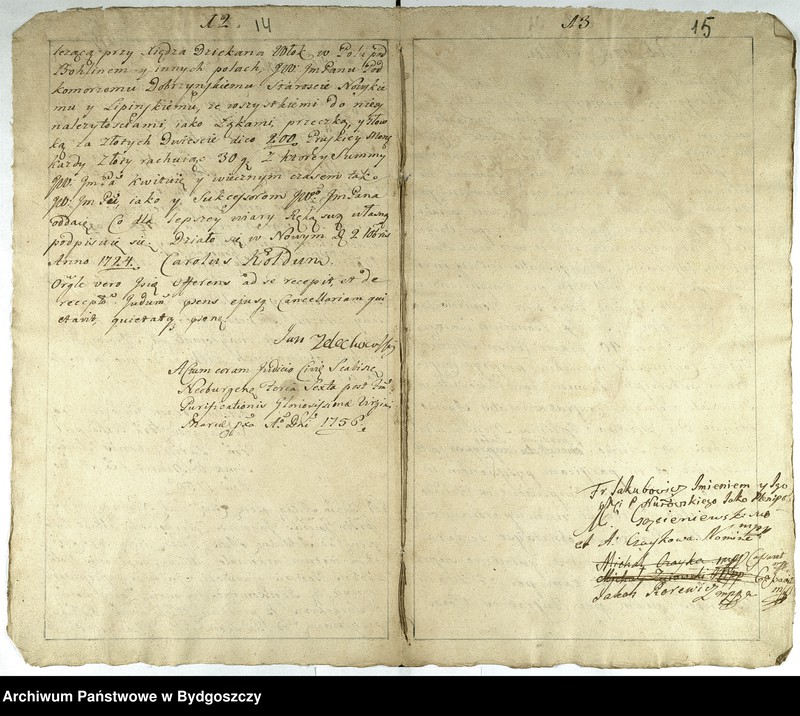 12. 14
leżącą przy Xiędza Dziekana Włok, w Polu pod
Bohlinem y innych polach, JW: JmPanu Pod
komorzemu Dobrzynskiemu Staroscie
mu y Lipinskiemu, ze wszystkiemi do niey
należytosciami, iako Łąkami,
ką za Złotych Dwiescie dico 200. Pruskiey Mone
każdy Złoty rachuiąc 30 g. Z ktorey Summy
JW: JmPa kwituię y wiecznym czasem tak
JW: JmPa, iako y Sukcessorom JWo JmPana
oddaię. Co dla lepszey wiary Ręką swą własną
podpisuię się. Działo się w Nowym D 2
Anno 1724. Carolus Kołdun
Orgle vero Jsię offerens ad se recepit, et de
recepto Judum psens ejusq Cancellariam qui
etavit, quietatq psenę
Jan
Actum coram Judicio Civię Scabinę
Neoburgenę feria Sexta post
Purificationis Gloriosissimae Virgini
Mariae Ao Dni 1756.
13 15
Fr Jakubowicz Imieniem y
M.
mpp
et A. Czaykowa Nomine
Michał Czayka mpp
Jakob Rosewicz mppa
Archiwum Państwowe w Bydgoszczy